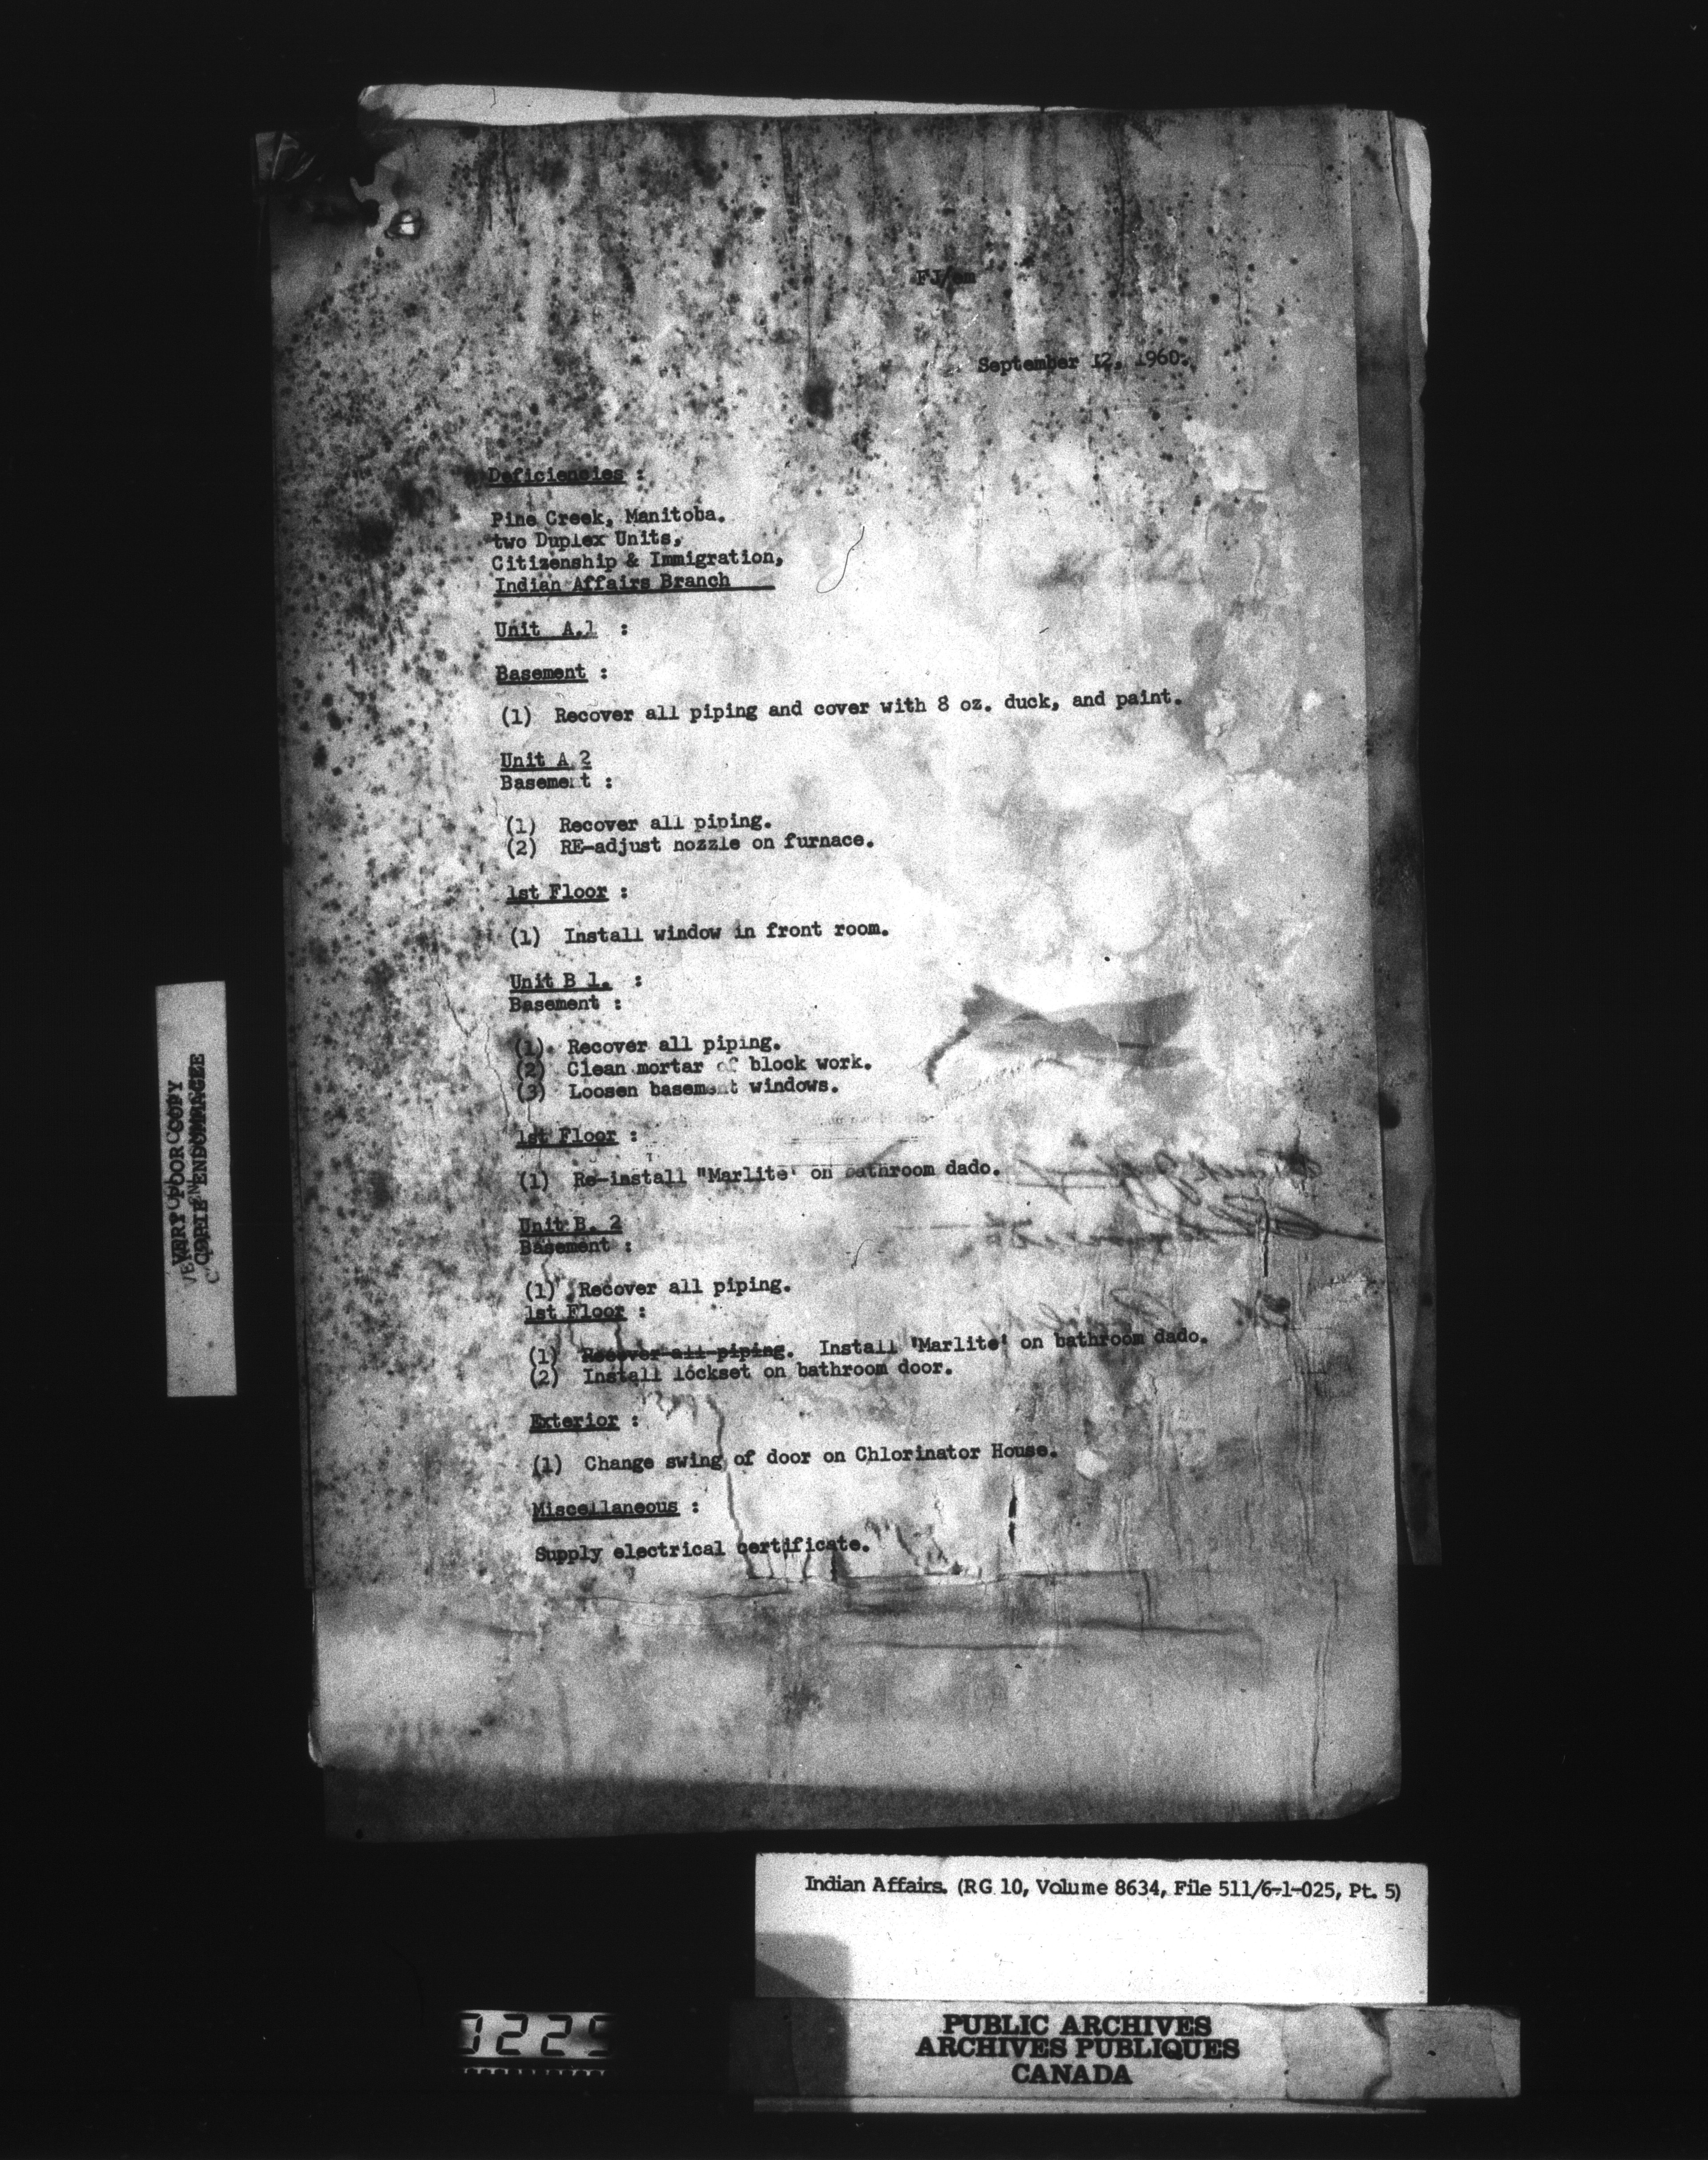 FJ/
September 12, 1960.
Deficiencies :
Pine Creek, Manitoba.
two Duplex Units,
Citizenship & Immigration,
Indian Affairs Branch
Unit A.1 :
Basement :
(1) Recover all piping and cover with 8 oz. duck, and paint.
Unit A 2
Basement :
(1) Recover all piping.
(2) RE-adjust nozzle on furnace.
1st Floor :
(1) Install window in front room.
Unit B 1. :
Basement :
(1). Recover all piping.
(2) Clean mortar of block work.
(3) Loosen basement windows.
1st Floor :
(1) Re-install "Marlite' on bathroom dado.
Unit B. 2
Basement :
(1) Recover all piping.
1st Floor :
(1) Recover all piping. Install 'Marlite' on bathroom dado.
(2) Install lockset on bathroom door.
Exterior :
(1) Change swing of door on Chlorinator House.
Miscellaneous :
Supply electrical certificate.
VERY POOR COPY
COPIE ENDOMMAGEE
Indian Affairs. (RG 10, Volume 8634, File 511/6-1-025, Pt. 5)
0225
PUBLIC ARCHIVES
ARCHIVES PUBLIQUES
CANADA